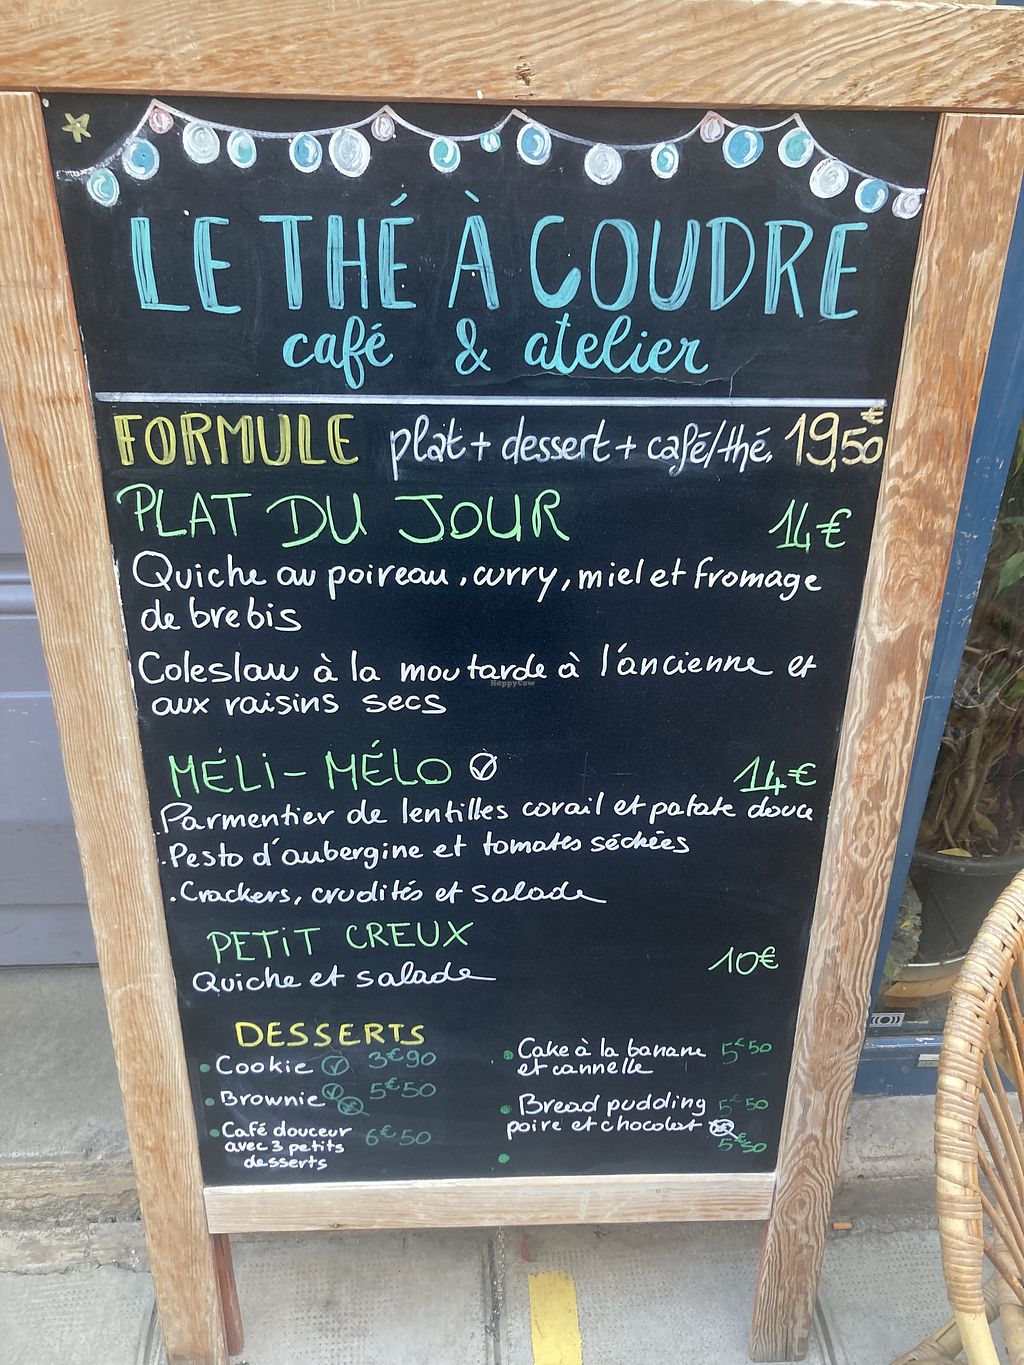 LE THÉ À COUDRE
café & atelier
FORMULE plat + dessert + café/thé. 19,50€
PLAT DU JOUR 14€
Quiche au poireau, curry, miel et fromage
de brebis
Coleslaw à la moutarde à l'ancienne et
aux raisins secs
HappyCow
MÉLI-MÉLO 14€
.Parmentier de lentilles corail et patate douce
.Pesto d'aubergine et tomates séchées
.Crackers, crudités et salade
PETIT CREUX
10€
Quiche et salade
DESSERTS
• Cookie 3€90
• Brownie 5€50
• Café douceur 6€50
avec 3 petits
desserts
• Cake à la banane 5€50
et cannelle
• Bread pudding 5€50
poire et chocolat
5€50